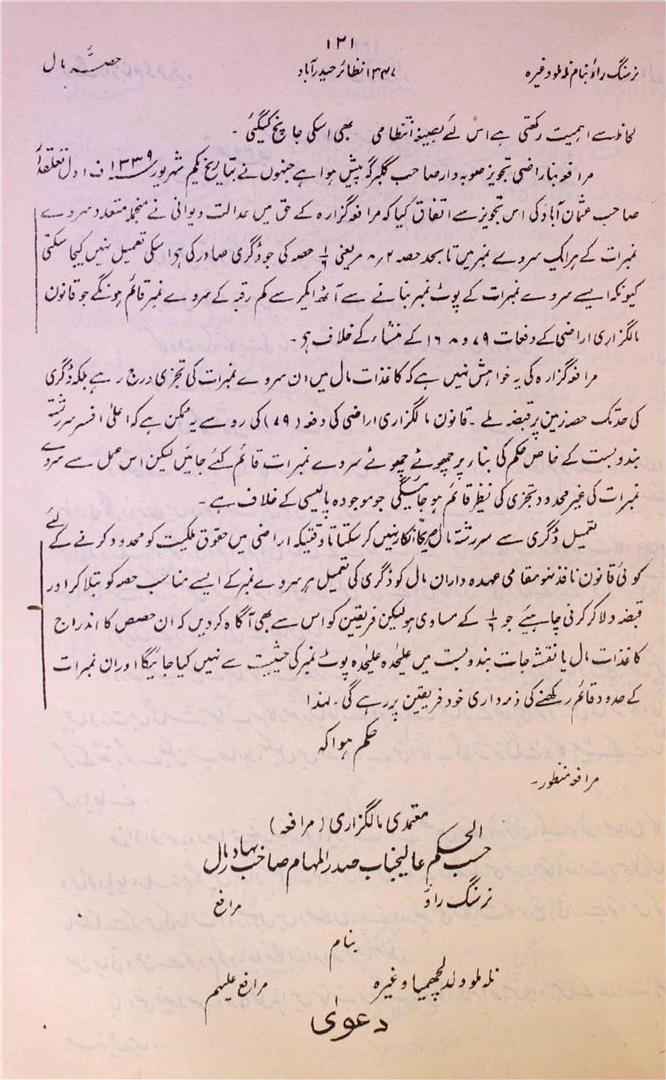 ۱۲۱
نرسنگ راؤ بنام نلہ ملو وغیرہ ۱۳۴۷ نظائر حیدرآباد حصۂ مال
لحاظ سے اہمیت رکھتی ہے اس لئے بصیغہ انتظامی بھی اسکی جانچ کیگئی ۔
مرافعہ بناراضی تجویز صوبہ دار صاحب گلبرگہ پیش ہوا ہے جنہوں نے بتاریخ یکم شہریور ۱۳۳۹ ف اول تعلقدار
صاحب عثمان آباد کی اس تجویز سے اتفاق کیا کہ مرافعہ گزارہ کے حق میں عدالت دیوانی نے منجملہ متعدد سروے
نمبرات کے ہر ایک سروے نمبر میں تا بحد حصہ ۲ ؍ ۸ ؍ یعنی ۱/۶ حصہ کی جو ڈگری صادر کی ہے اسکی تعمیل نہیں کیجا سکتی
کیونکہ ایسے سروے نمبرات کے پوٹ نمبر بنانے سے آٹھ ایکر سے کم رقبہ کے سروے نمبر قائم ہونگے جو قانون
مالگزاری اراضی کے دفعات ۷۹ و ۸۰ ۱۶ کے منشاء کے خلاف ہے ۔
مرافعہ گزارہ کی یہ خواہش نہیں ہے کہ کاغذات مال میں ان سروے نمبرات کی تجزی درج رہے بلکہ ڈگری
کی حد تک حصہ زمین پر قبضہ ملے ۔ قانون مالگزاری اراضی کی دفعہ (۷۹) کی رو سے یہ ممکن ہے کہ اعلیٰ افسر سررشتہ
بندوبست کے خاص حکم کی بناء پر چھوٹے چھوٹے سروے نمبرات قائم کئے جائیں لیکن اس عمل سے سروے
نمبرات کی غیر محدود تجزی کی نظیر قائم ہو جائیگی جو موجودہ پالیسی کے خلاف ہے ۔
تعمیل ڈگری سے سررشتہ مال صریحاً انکار نہیں کر سکتا تا وقتیکہ اراضی میں حقوق ملکیت کو محدود کرنے کے لئے
کوئی قانون نافذ نہ ہو مقامی عہدہ داران مال کو ڈگری کی تعمیل ہر سروے نمبر کے ایسے مناسب حصہ کو بتلا کر اور
قبضہ دلا کر کرنی چاہیئے جو ۱/۶ کے مساوی ہو لیکن فریقین کو اس سے بھی آگاہ کر دیں کہ ان حصص کا اندراج
کاغذات مال یا نقشجات بندوبست میں علیحدہ علیحدہ پوٹ نمبر کی حیثیت سے نہیں کیا جائیگا اور ان نمبرات
کے حدود قائم رکھنے کی ذمہ داری خود فریقین پر رہے گی ۔ لہذا
حکم ہوا کہ
مرافعہ منظور ۔
معتمدی مالگزاری (مرافعہ)
حسب الحکم عالیجناب صدر المہام صاحب بہادر مال
نرسنگ راؤ مرافع
بنام
نلہ ملو ولد لچھمیا وغیرہ مرافع علیہم
دعویٰ